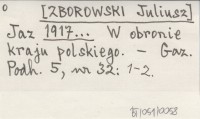 [ZBOROWSKI Juliusz]
Jaz 1917... W obronie
kraju polskiego. – Gaz.
Podh. 5, nr 32: 1-2.